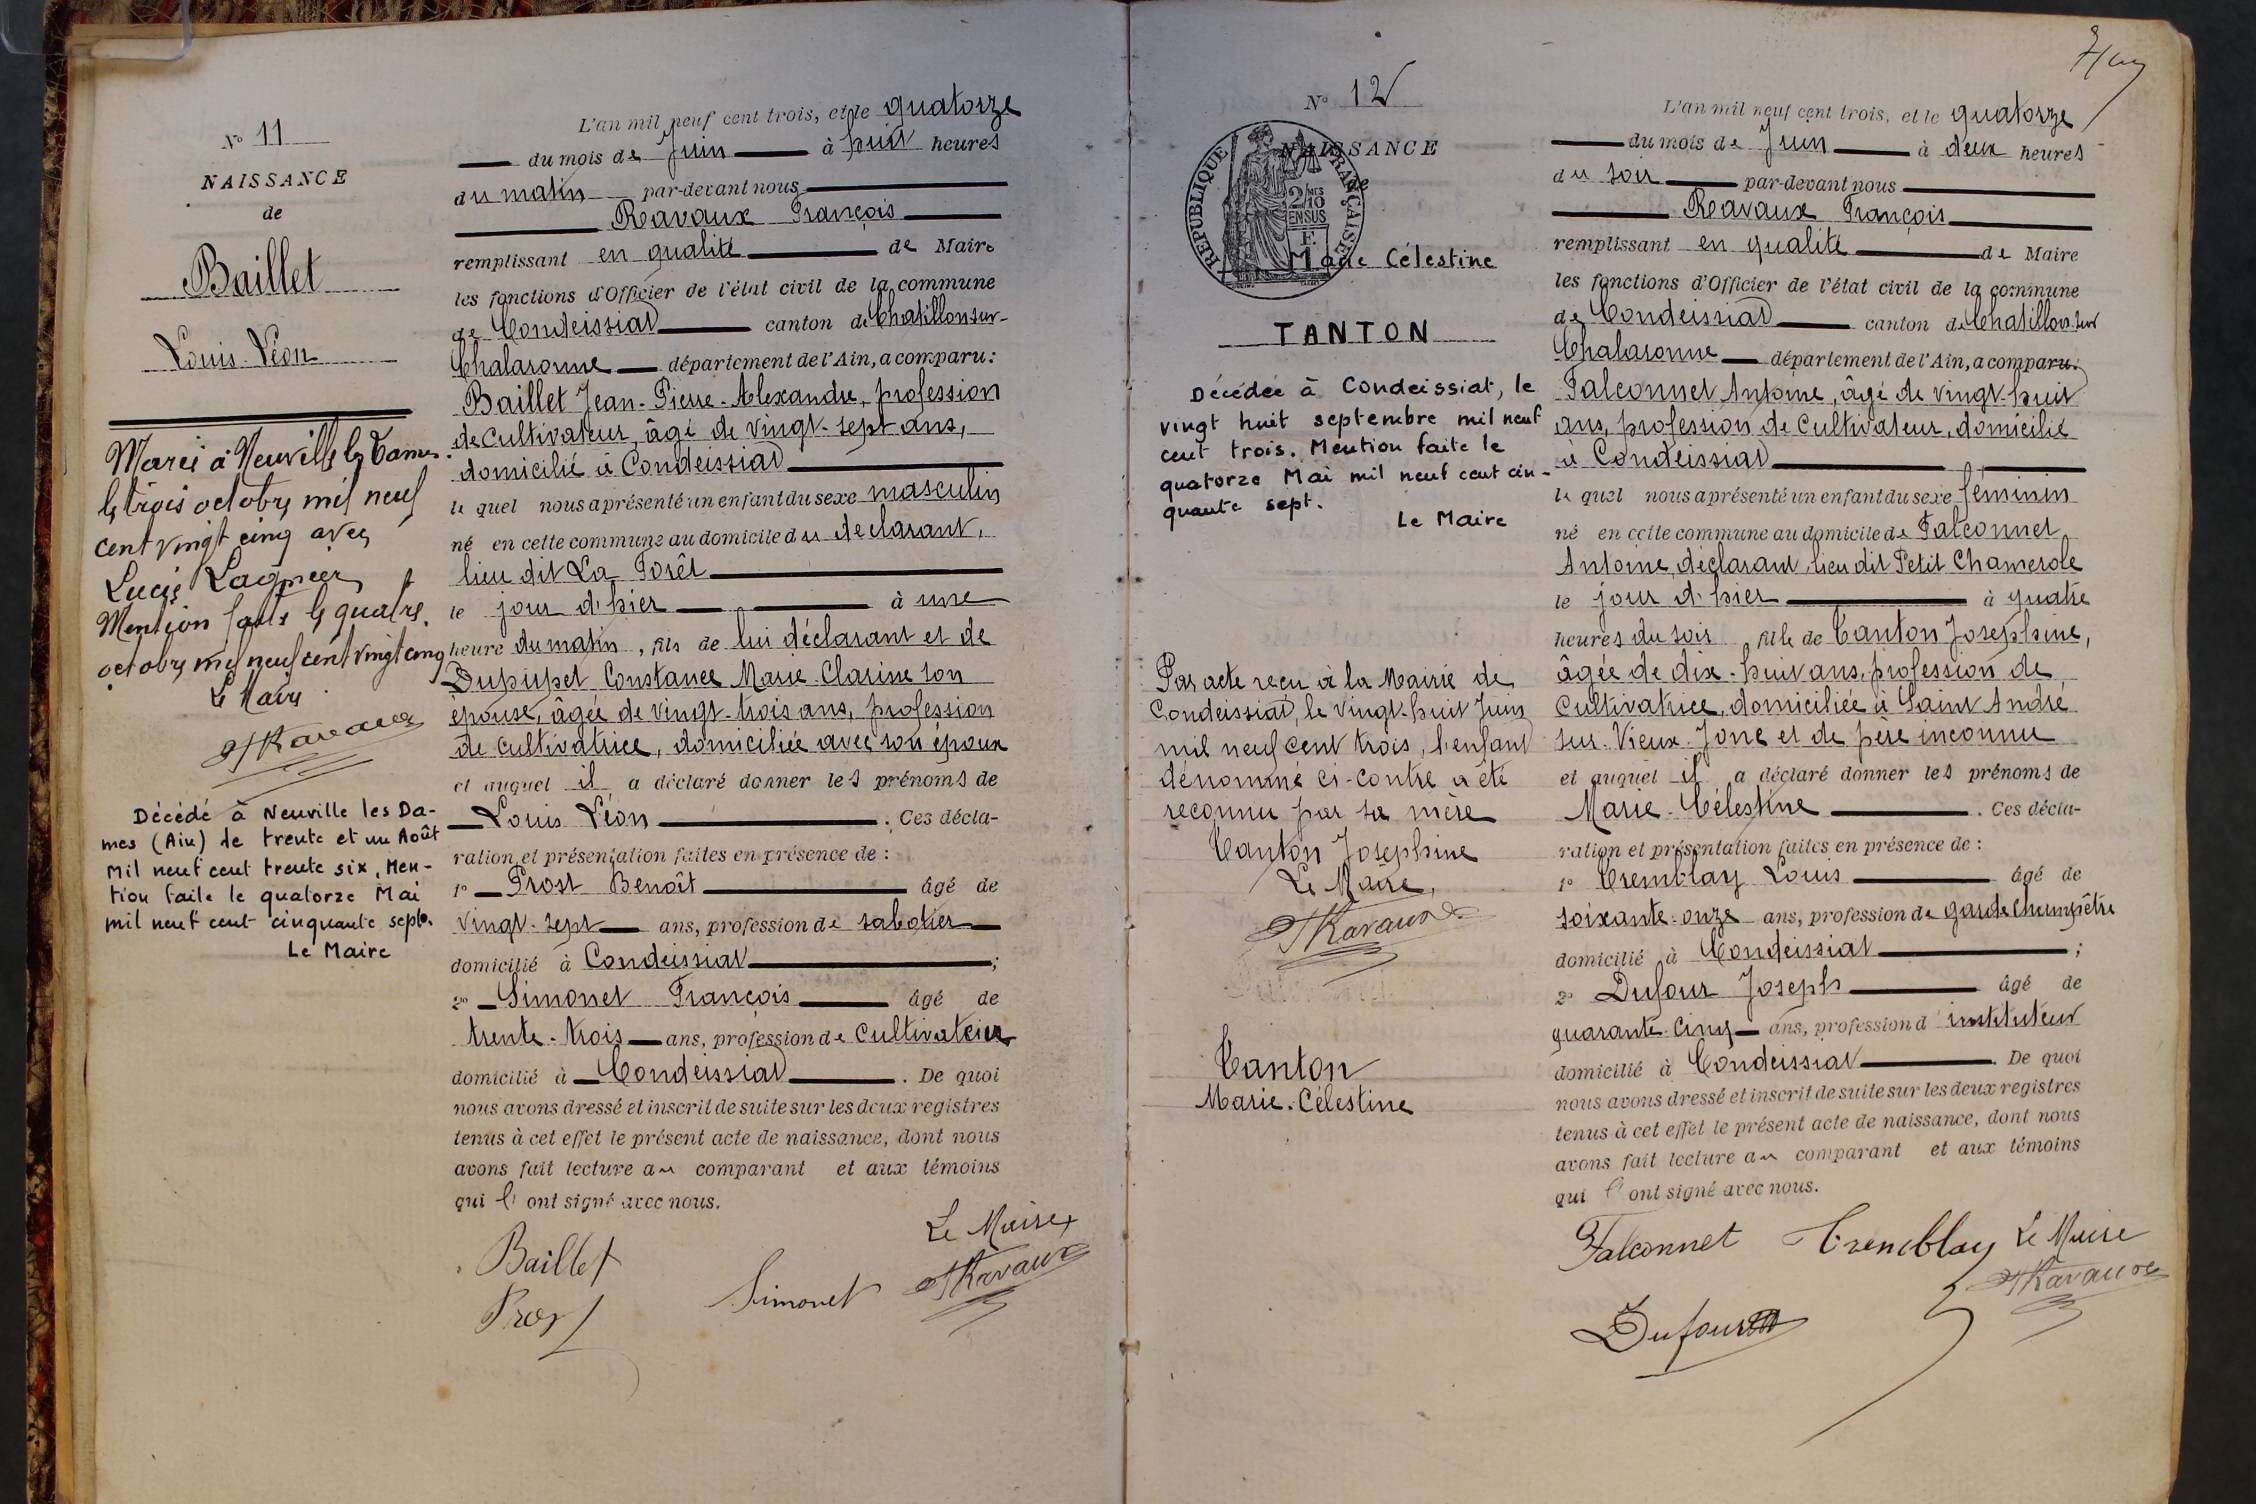 N° 11
NAISSANCE
de
Baillet
Louis Léon
Marié à Neuville les Dames
le trois octobre mil neuf
cent vingt cinq avec
Lucie Lagnier
Mention faite le quatre
octobre mil neuf cent vingt cinq
Le Maire
FRavaux
Décédé à Neuville les Da-
mes (Ain) de trente et un Août
mil neuf cent trente six, Men-
tion faite le quatorze Mai
mil neuf cent cinquante sept.
Le Maire
L'an mil neuf cent trois, et le quatorze
du mois de Juin à huit heures
du matin par-devant nous
Ravaux François
remplissant en qualité de Maire
les fonctions d'Officier de l'état civil de la commune
de Condeissiat canton de Chatillon sur-
Chalaronne département de l'Ain, a comparu:
Baillet Jean-Pierre-Alexandre, profession
de Cultivateur, âgé de vingt-sept ans,
domicilié à Condeissiat
le quel nous a présenté un enfant du sexe masculin
né en cette commune au domicile du déclarant,
lieu dit La Forêt
le jour d'hier à une
heure du matin, fils de lui déclarant et de
Dupupet Constance Marie-Clarisse son
épouse, âgée de vingt-trois ans, profession
de cultivatrice, domiciliée avec son époux
et auquel il a déclaré donner les prénoms de
Louis Léon. Ces décla-
ration et présentation faites en présence de :
1° Prost Benoît âgé de
vingt-sept ans, profession de sabotier
domicilié à Condeissiat ;
2° Simonet François âgé de
trente-trois ans, profession de Cultivateur
domicilié à Condeissiat. De quoi
nous avons dressé et inscrit de suite sur les deux registres
tenus à cet effet le présent acte de naissance, dont nous
avons fait lecture au comparant et aux témoins
qui l'ont signé avec nous.
Le Maire
Baillet
Prost
Simonet
FRavaux
N° 12
NAISSANCE
de
RÉPUBLIQUE FRANÇAISE
2/10 MES
EN SUS
Marie Célestine
TANTON
Décédée à Condeissiat, le
vingt huit septembre mil neuf
cent trois. Mention faite le
quatorze Mai mil neuf cent cin-
quante sept.
Le Maire
Par acte reçu à la Mairie de
Condeissiat, le vingt-huit Juin
mil neuf cent trois, l'enfant
dénommé ci-contre a été
reconnu par sa mère
Tanton Josephine
Le Maire,
FRavaux
Tanton
Marie-Célestine
L'an mil neuf cent trois, et le quatorze
du mois de Juin à deux heures
du soir par-devant nous
Ravaux François
remplissant en qualité de Maire
les fonctions d'Officier de l'état civil de la commune
de Condeissiat canton de Chatillon sur
Chalaronne département de l'Ain, a comparu:
Falconnet Antoine, âgé de vingt-huit
ans, profession de Cultivateur, domicilié
à Condeissiat
le quel nous a présenté un enfant du sexe féminin
né en cette commune au domicile de Falconnet
Antoine, déclarant, lieu dit Petit Chamerole
le jour d'hier à quatre
heures du soir, fille de Tanton Josephine,
âgée de dix-huit ans, profession de
Cultivatrice, domiciliée à Saint André
sur-Vieux-Jonc et de père inconnu
et auquel il a déclaré donner les prénoms de
Marie-Célestine. Ces décla-
ration et présentation faites en présence de :
1° Tremblay Louis âgé de
soixante-onze ans, profession de garde champêtre
domicilié à Condeissiat ;
2° Dufour Joseph âgé de
quarante-cinq ans, profession d'instituteur
domicilié à Condeissiat. De quoi
nous avons dressé et inscrit de suite sur les deux registres
tenus à cet effet le présent acte de naissance, dont nous
avons fait lecture au comparant et aux témoins
qui l'ont signé avec nous.
Falconnet Tremblay Le Maire
FRavaux
Dufour